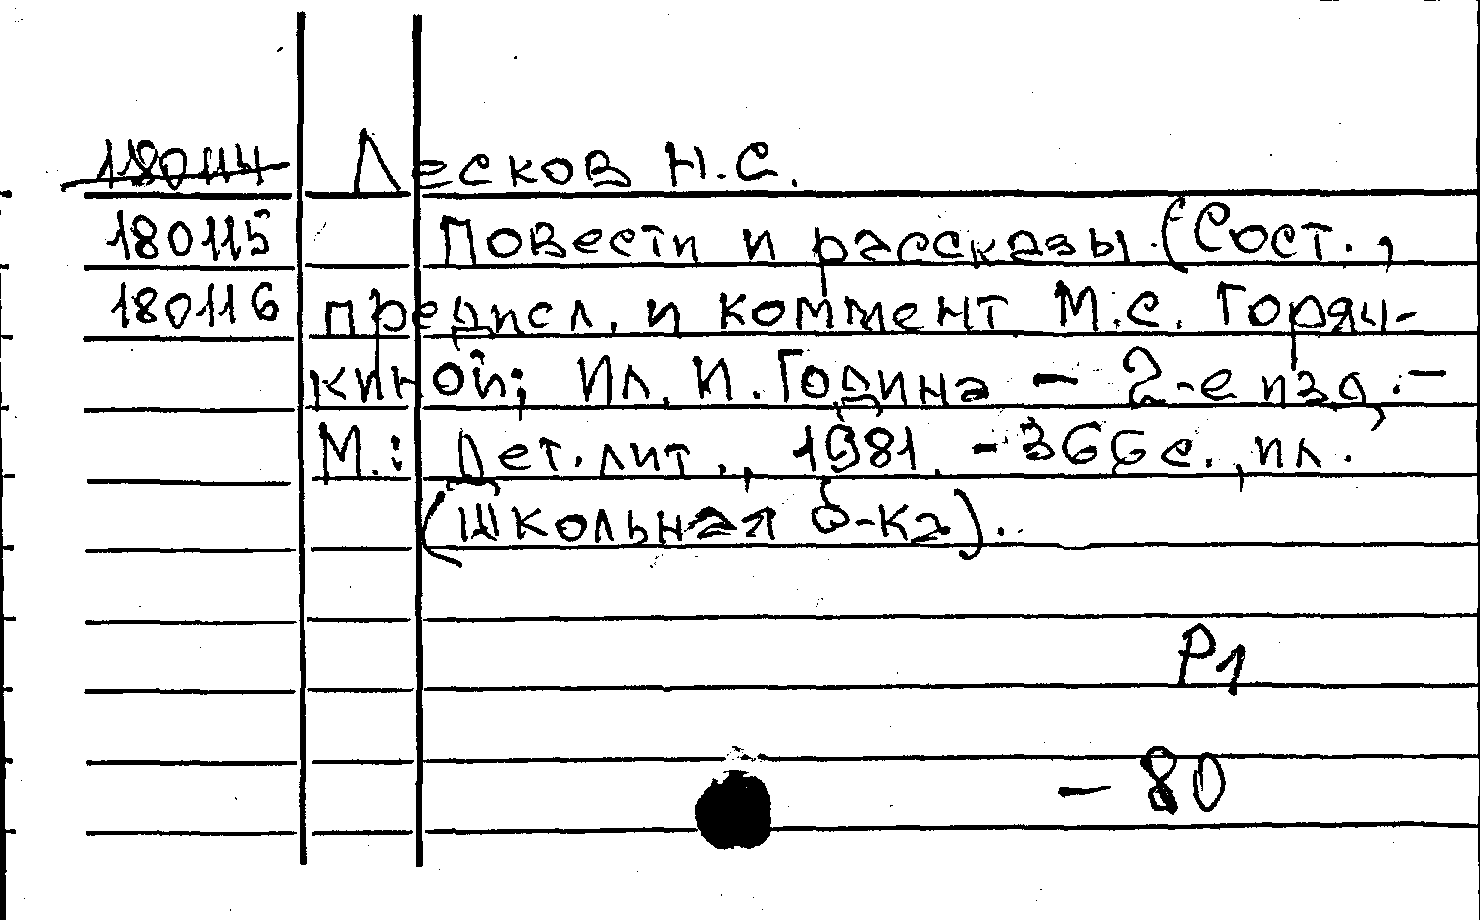 180114 Лесков Н.С.
180115 Повести и рассказы (Сост.,
180116 предисл. и коммент М.С. Горяч-
киной; Ил. И. Година – 2-е изд. –
М.: Дет. лит., 1981. – 366 с., ил.
(Школьная б-ка).
Р1
– 80